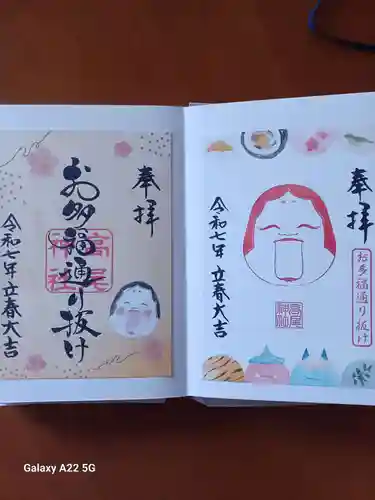 奉拝
お多福通り抜け
高尾
神社
令和七年 立春大吉
奉拝
お多福通り抜け
高尾
神社
令和七年 立春大吉
Galaxy A22 5G